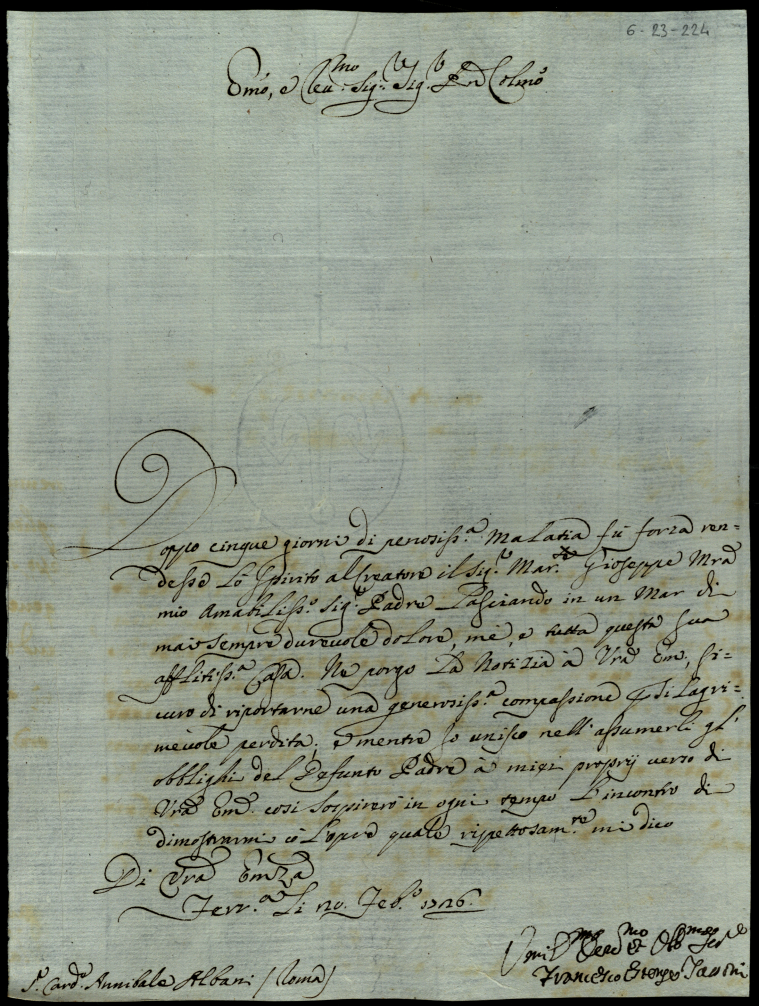 6-23-224
Emo, e Reu:mo Sig:r Sig:r Pne Colmo
Doppo cinque giorni di penosiss:a malatia fù forza ren=
desse Lo Spirito al Creatore il Sig:r Mar: Gioseppe
mio Amabiliss:o Sig:r Padre Lasciando in un Mar di
mai sempre durevole dolore, mè, e tutta questa sua
afflitiss:a Casa. Ne porgo La Notizia à Vra Em:, si=
curo di riportarne una generosiss:a compassione di Lagri=
mevole perdita; e mentre io unisco nell'assumerli gl'
obblighi del Defunto Padre à miei proprij verso di
Vra Em:a cosi Sospirerò in ogni tempo L'incontro di
dimostrarmi cō L'opre quale rispettosam:te mi dico
Di Vra Emza
Ferr:a Li 20. Feb:o 1726.
Umil:mo Deu:mo et Obb:mo Ser:e
Francesco Estense Tassoni
S:r Card:e Annibale Albani / Roma /